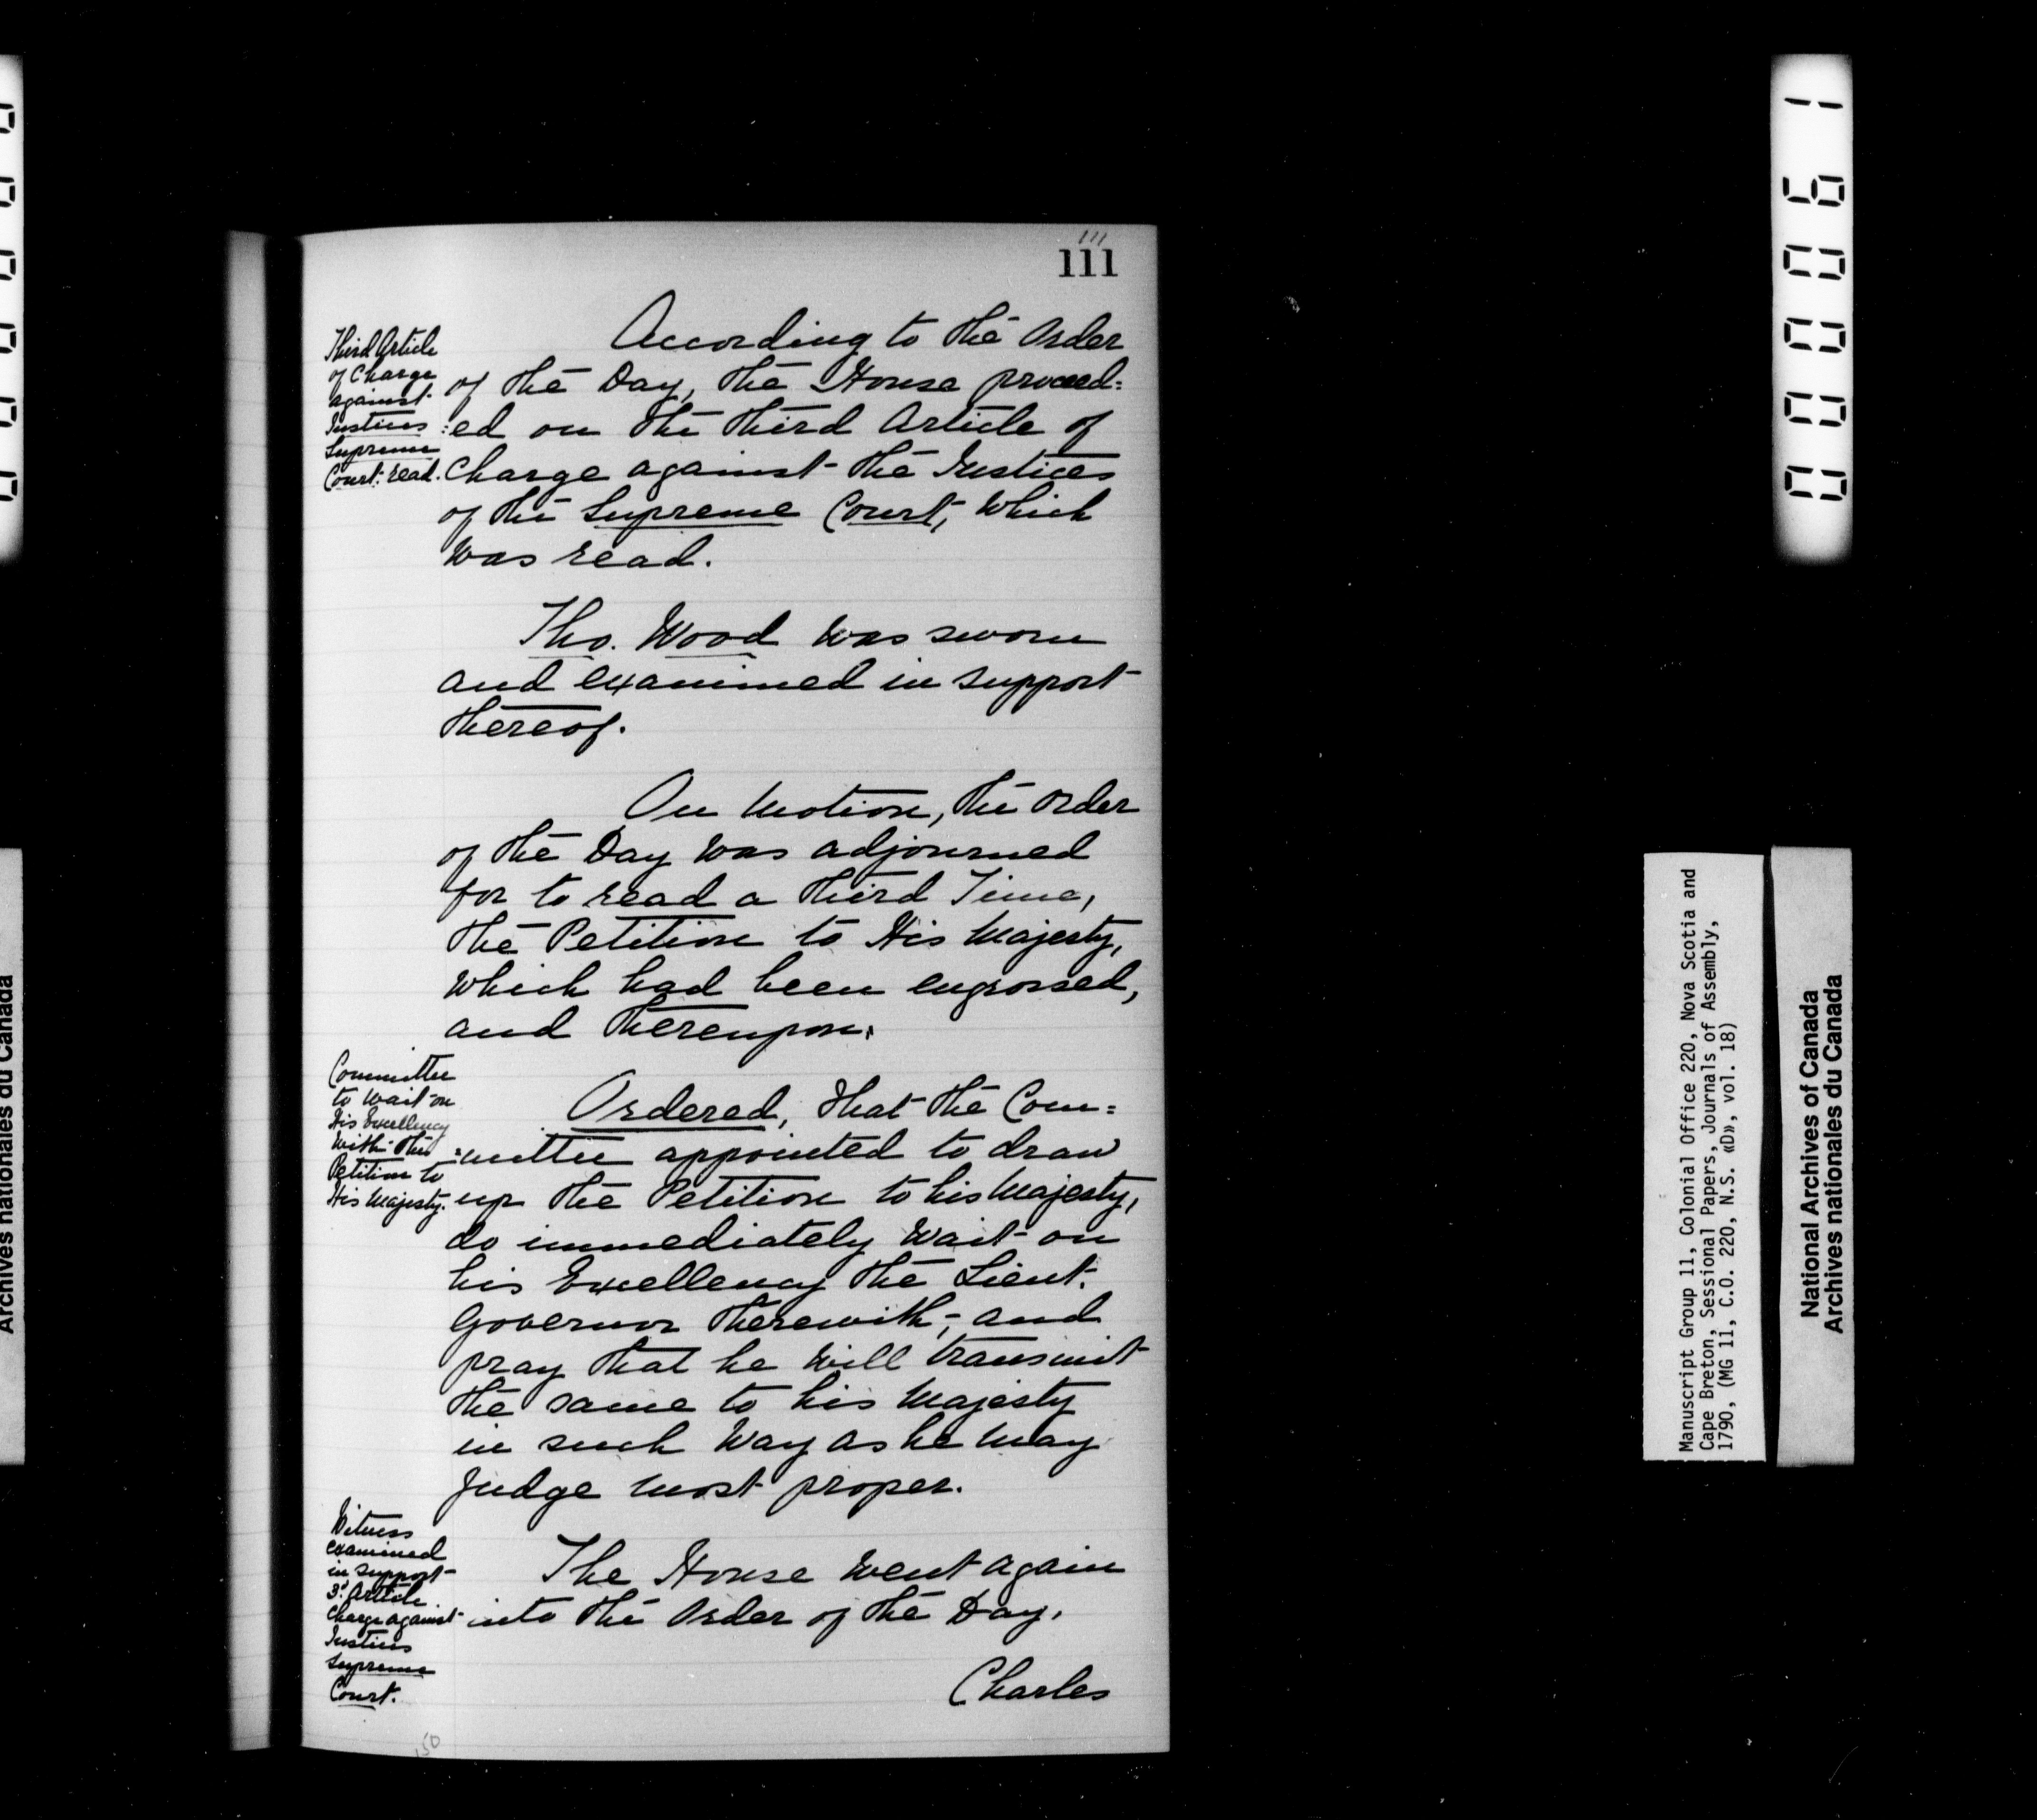 111
111
Third Article
of Charge
against
Justices
Supreme
Court: read.
According to the Order
of the Day, the House proceed=
=ed on the third Article of
Charge against the Justices
of the Supreme Court, which
was read.
Tho. Wood was sworn
and examined in support
thereof.
On Motion, the Order
of the Day was adjourned
for to read a third Time,
the Petition to His Majesty,
which had been engrossed,
and thereupon,
Committee
to wait on
His Excellency
with the
Petition to
His Majesty.
Ordered, that the Com=
=mittee appointed to draw
up the Petition to his Majesty,
do immediately wait on
his Excellency the Lieut.
Governor therewith, and
pray that he will transmit
the same to his Majesty
in such Way as he may
Judge most proper.
Witness
examined
in support
3d Article
Charge against
Justices
Supreme
Court.
The House went again
into the Order of the Day.
Charles
150
000061
Manuscript Group 11, Colonial Office 220, Nova Scotia and
Cape Breton, Sessional Papers, Journals of Assembly,
1790, (MG 11, C.O. 220, N.S. «D», vol. 18)
National Archives of Canada
Archives nationales du Canada
Archives nationales du Canada